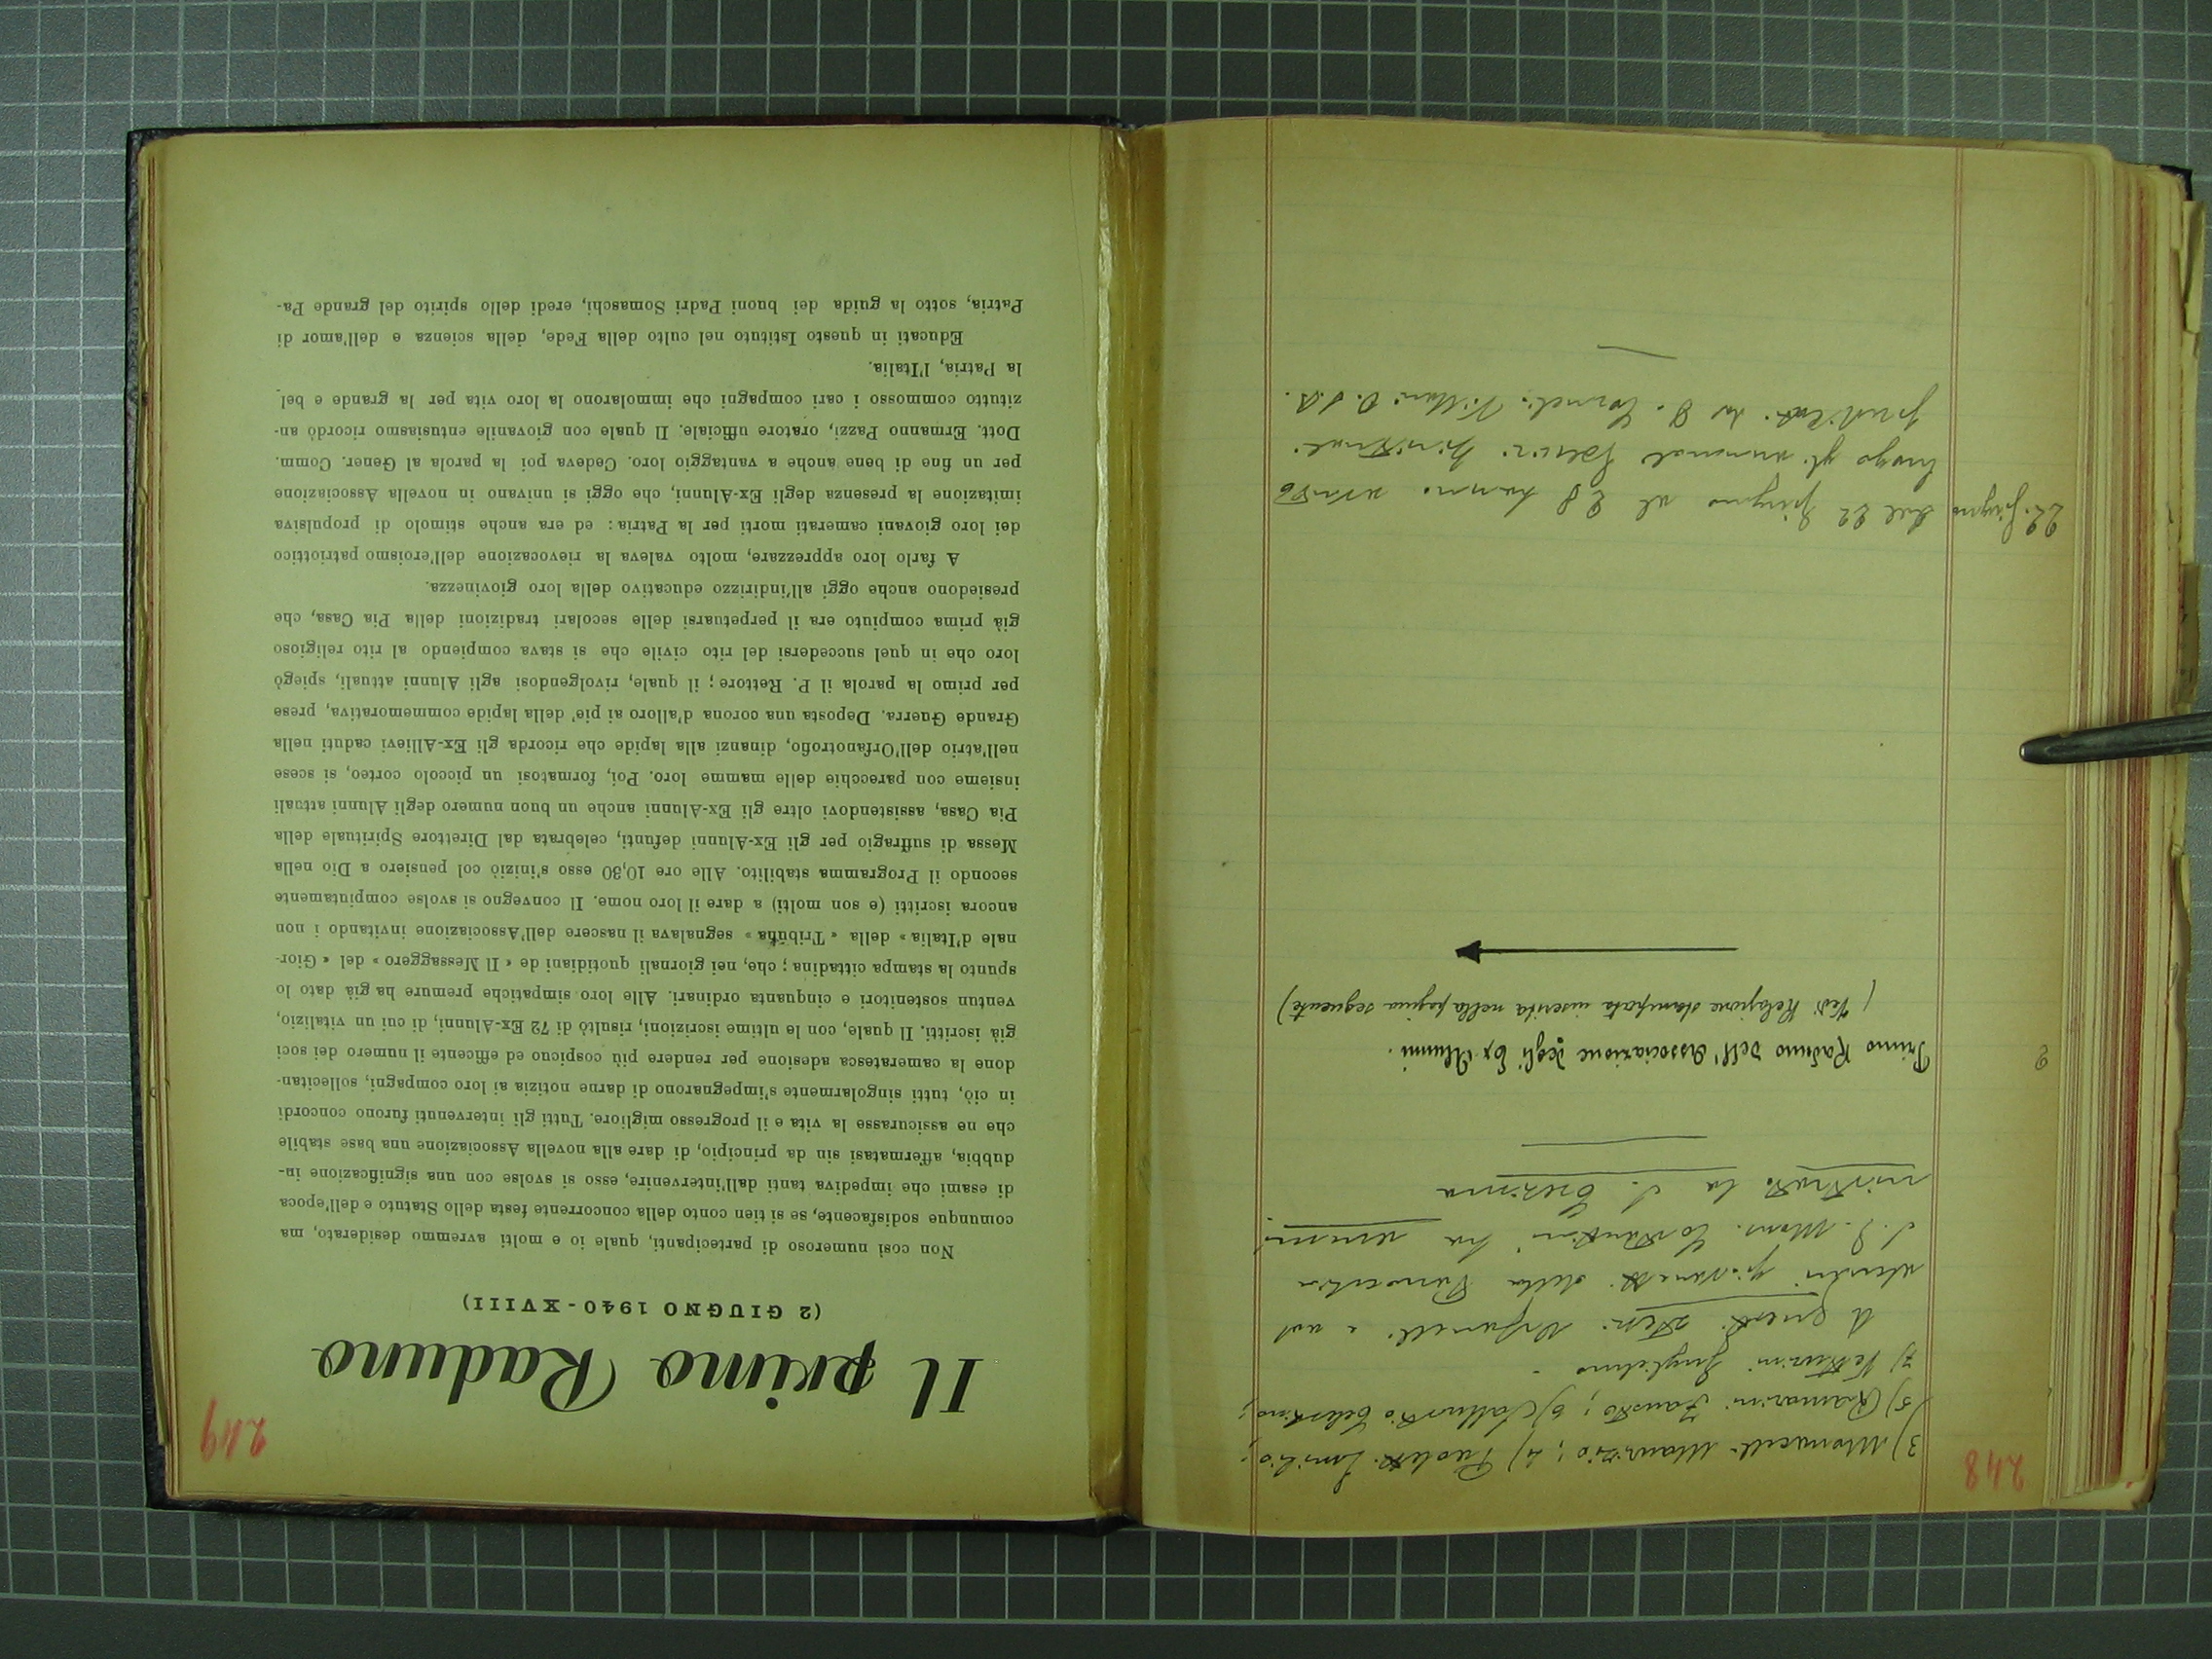 248
3) Monacelli Maurizio; 4) Paoletti Emilio;
5) Ramarini Fausto; 6) Sallustio Celestino;
7) Vetturini Guglielmo -
A questi stessi Orfanelli e ad
alcuni giovanetti della Parrocchia
S. E. Mons. Costantini ha ammi
nistrato la S. Cresima
2
Primo Raduno dell'Associazione degli Ex Alunni.
(Vedi Relazione stampata inserita nella pagina seguente)
22. giugno Dal 22 giugno al 28 hanno avuto
luogo gli annuali Esercizi Spirituali
predicati da P. Villani O.S.A.
249
Il primo Raduno
(2 GIUGNO 1940-XVIII)
Non così numeroso di partecipanti, quale io e molti avremmo desiderato, ma
comunque sodisfacente, se si tien conto della concorrente festa dello Statuto e dell'epoca
di esami che impediva tanti dall'intervenire, esso si svolse con una significazione in-
dubbia, affermatasi sin da principio, di dare alla novella Associazione una base stabile
che ne assicurasse la vita e il progresso migliore. Tutti gli intervenuti furono concordi
in ciò, tutti singolarmente s'impegnarono di darne notizia ai loro compagni, sollecitan-
done la cameratesca adesione per rendere più cospicuo ed efficente il numero dei soci
già iscritti. Il quale, con le ultime iscrizioni, risultò di 72 Ex-Alunni, di cui un vitalizio,
ventun sostenitori e cinquanta ordinari. Alle loro simpatiche premure ha già dato lo
spunto la stampa cittadina; che, nei giornali quotidiani de « Il Messaggero » del « Gior-
nale d'Italia » della « Tribuna » segnalava il nascere dell'Associazione invitando i non
ancora iscritti (e son molti) a dare il loro nome. Il convegno si svolse compiutamente
secondo il Programma stabilito. Alle ore 10,30 esso s'iniziò col pensiero a Dio nella
Messa di suffragio per gli Ex-Alunni defunti, celebrata dal Direttore Spirituale della
Pia Casa, assistendovi oltre gli Ex-Alunni anche un buon numero degli Alunni attuali
insieme con parecchie delle mamme loro. Poi, formatosi un piccolo corteo, si scese
nell'atrio dell'Orfanotrofio, dinanzi alla lapide che ricorda gli Ex-Allievi caduti nella
Grande Guerra. Deposta una corona d'alloro ai pie' della lapide commemorativa, prese
per primo la parola il P. Rettore; il quale, rivolgendosi agli Alunni attuali, spiegò
loro che in quel succedersi del rito civile che si stava compiendo al rito religioso
già prima compiuto era il perpetuarsi delle secolari tradizioni della Pia Casa, che
presiedono anche oggi all'indirizzo educativo della loro giovinezza.
A farlo loro apprezzare, molto valeva la rievocazione dell'eroismo patriottico
dei loro giovani camerati morti per la Patria: ed era anche stimolo di propulsiva
imitazione la presenza degli Ex-Alunni, che oggi si univano in novella Associazione
per un fine di bene anche a vantaggio loro. Cedeva poi la parola al Gener. Comm.
Dott. Ermanno Pazzi, oratore ufficiale. Il quale con giovanile entusiasmo ricordò an-
zitutto commosso i cari compagni che immolarono la loro vita per la grande e bel
la Patria, l'Italia.
Educati in questo Istituto nel culto della Fede, della scienza e dell'amor di
Patria, sotto la guida dei buoni Padri Somaschi, eredi dello spirito del grande Pa-